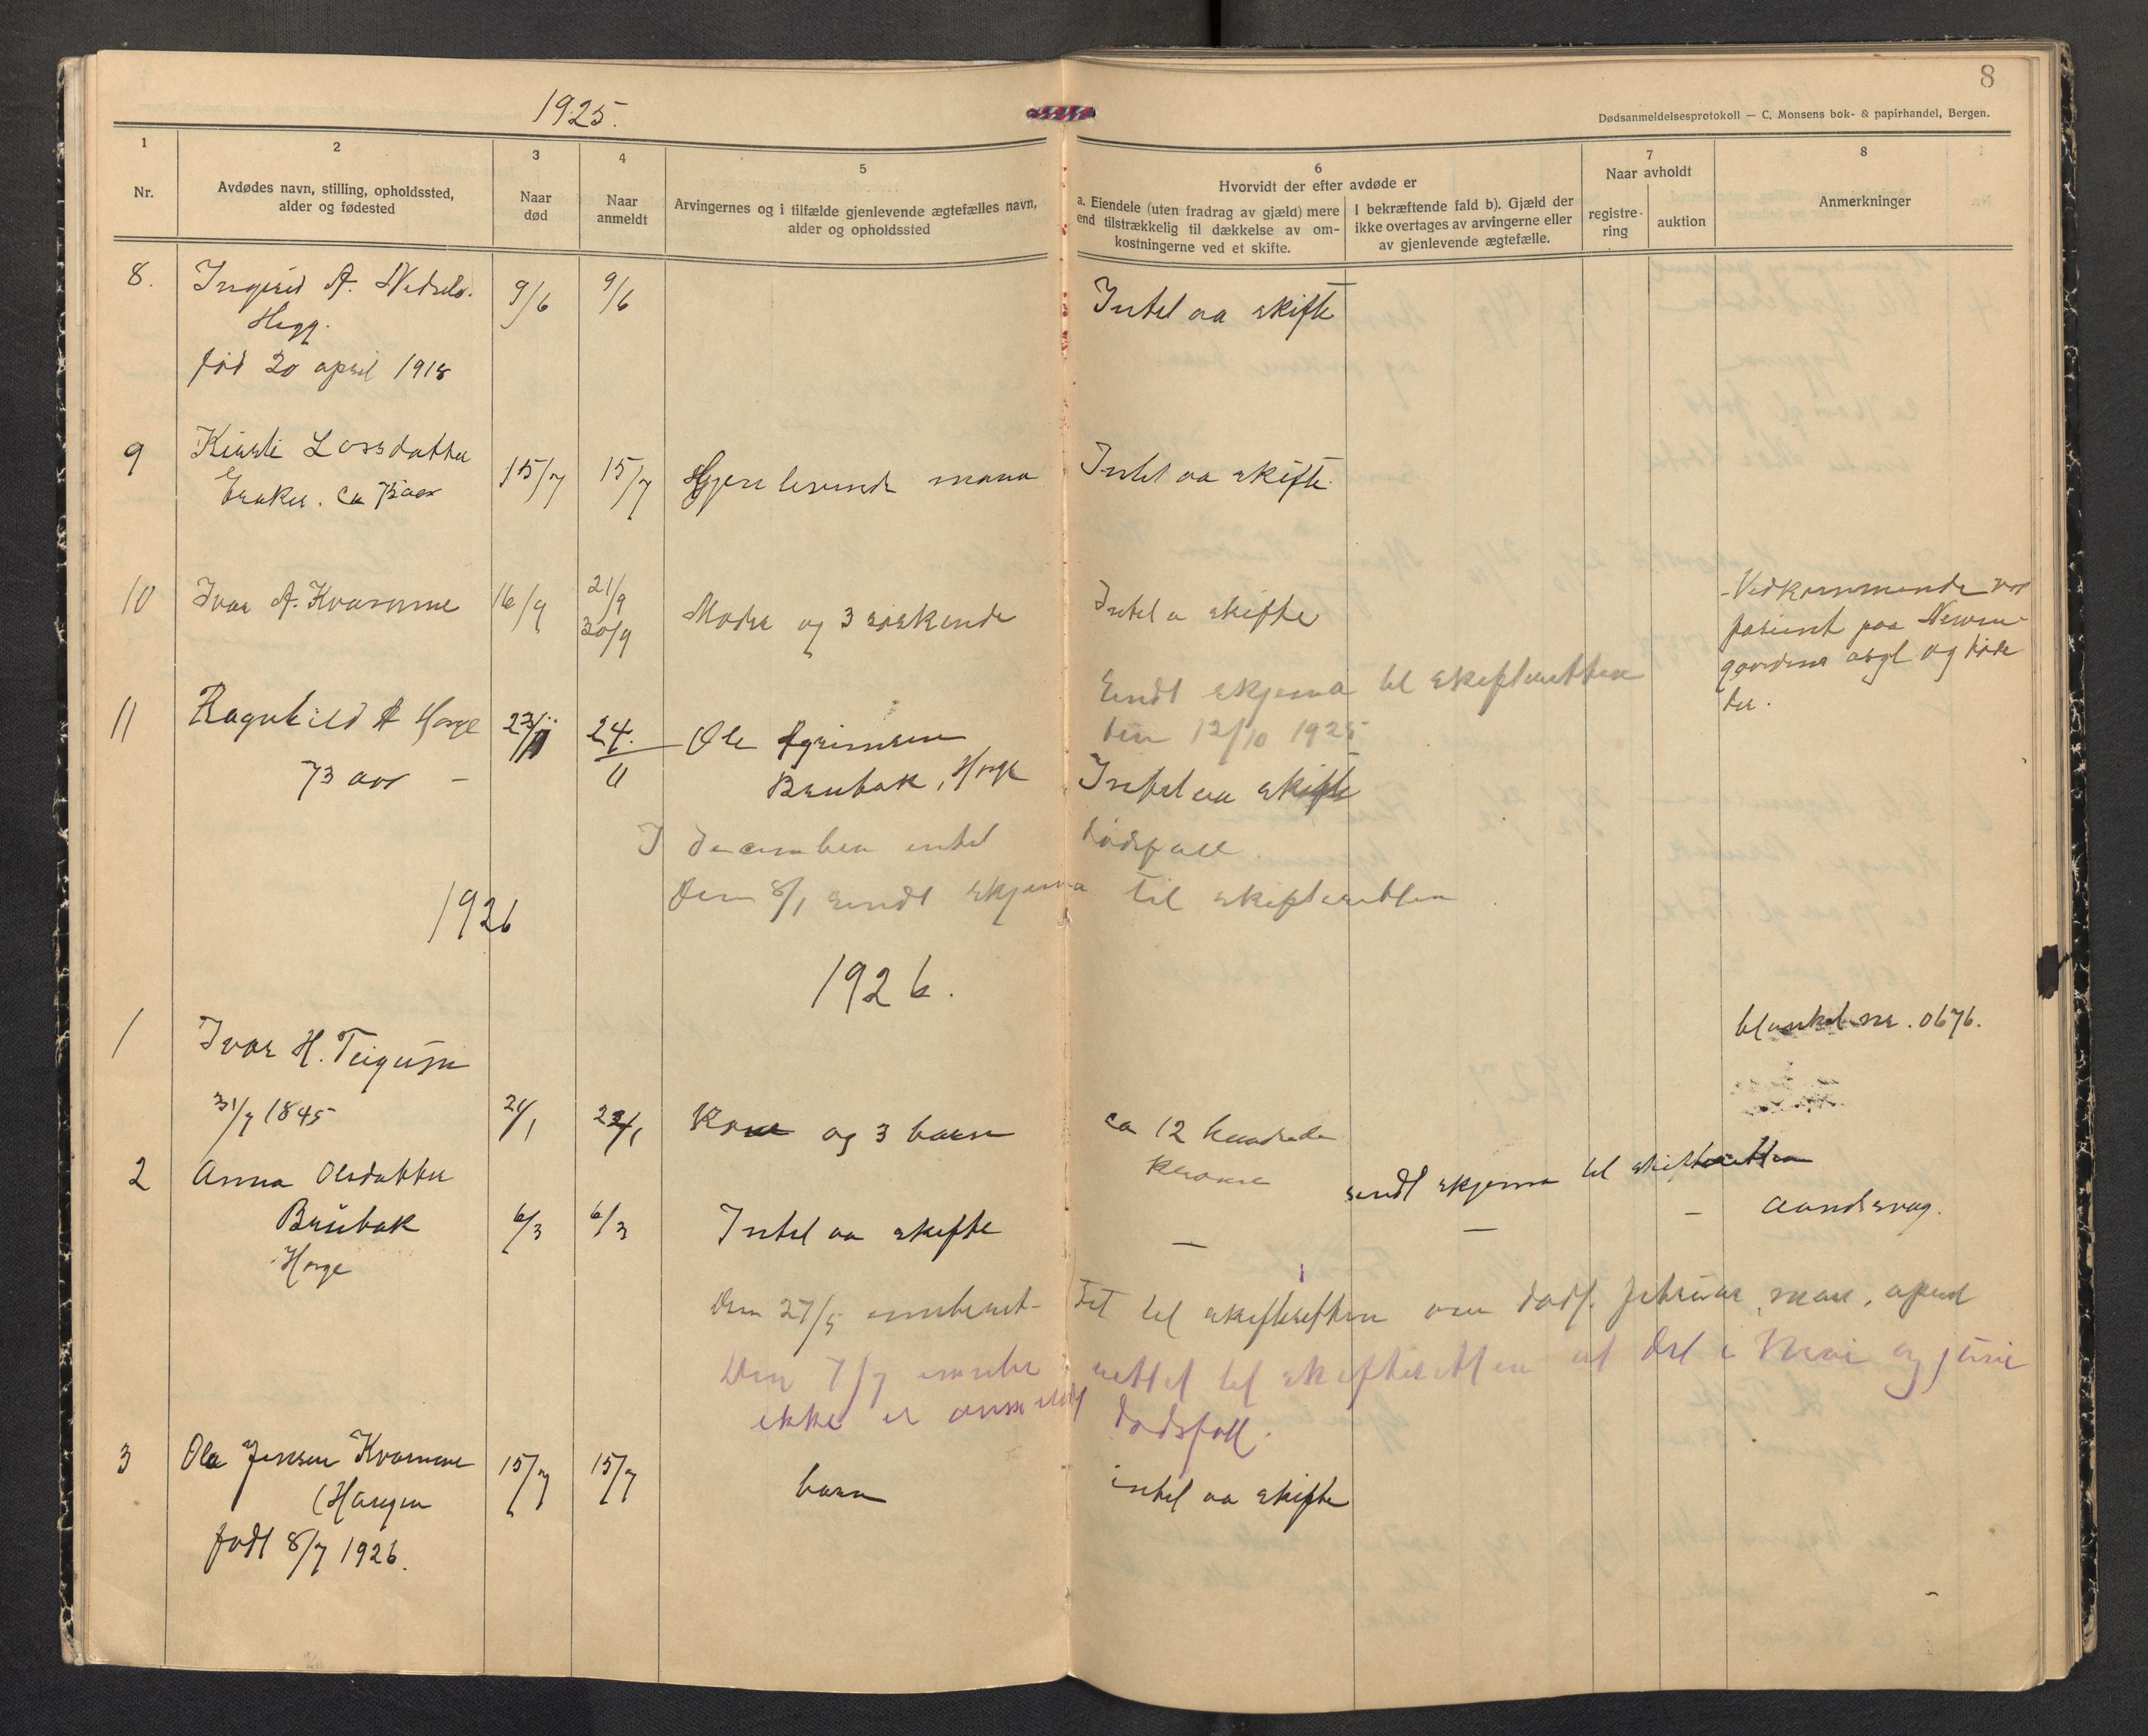 8
1925.
Dødsanmeldelsesprotokoll — C. Monsens bok- & papirhandel, Bergen.
1
2
3
4
5
6
7
8
Nr.
Avdødes navn, stilling, opholdssted,
alder og fødested
Naar
død
Naar
anmeldt
Arvingernes og i tilfælde gjenlevende ægtefælles navn,
alder og opholdssted
Hvorvidt der efter avdøde er
a. Eiendele (uten fradrag av gjæld) mere
end tilstrækkelig til dækkelse av om-
kostningerne ved et skifte.
I bekræftende fald b). Gjæld der
ikke overtages av arvingerne eller
av gjenlevende ægtefælle.
Naar avholdt
registre-
ring
auktion
Anmerkninger
8. Ingerid A. 9/6 9/6 Intel aa skifte
Hegg.
fød 20 april 1918
9 Kirsti Larsdatter 15/7 15/7 Gjenlevende mann Intel aa skifte
ca 73 aar
10 Ivar A. Kvamme 16/9 21/9 Moder og 3 søskende Intel a skifte
30/9
Vedkommende var
pasient paa Neven-
gaardens asyl og døde
der.
Sendt skjema til skifteretten
den 12/10 1925
11 Ragnhild A Horge 23/11 24. Ole Agrimsen
73 aar - 11 Brubak, Horge Intet aa skifte
I december intet dødsfall.
Den 8/1 sendt skjema til skifteretten
1926
1926.
1 Ivar H. Teigum blanket nr. 0676.
31/7 1845 21/1 22/1 Kone og 3 barn ca 12 hundrede
kroner
sendt skjema til skifteretten
2 Anna Olsdatter
Brubak 6/3 6/3 Intel aa skifte — — - aandsvag.
Horge
Den 27/5 innberet- tet til skifteretten om dødsf. februar, mars, april
Den 7/7 innbe rettet til skifteretten at det i Mai og juni
ikke er anmeldt dødsfall.
3 Ola Jensen Kvamme 15/7 15/7 barn intel aa skifte
(Haugen
født 8/7 1926.